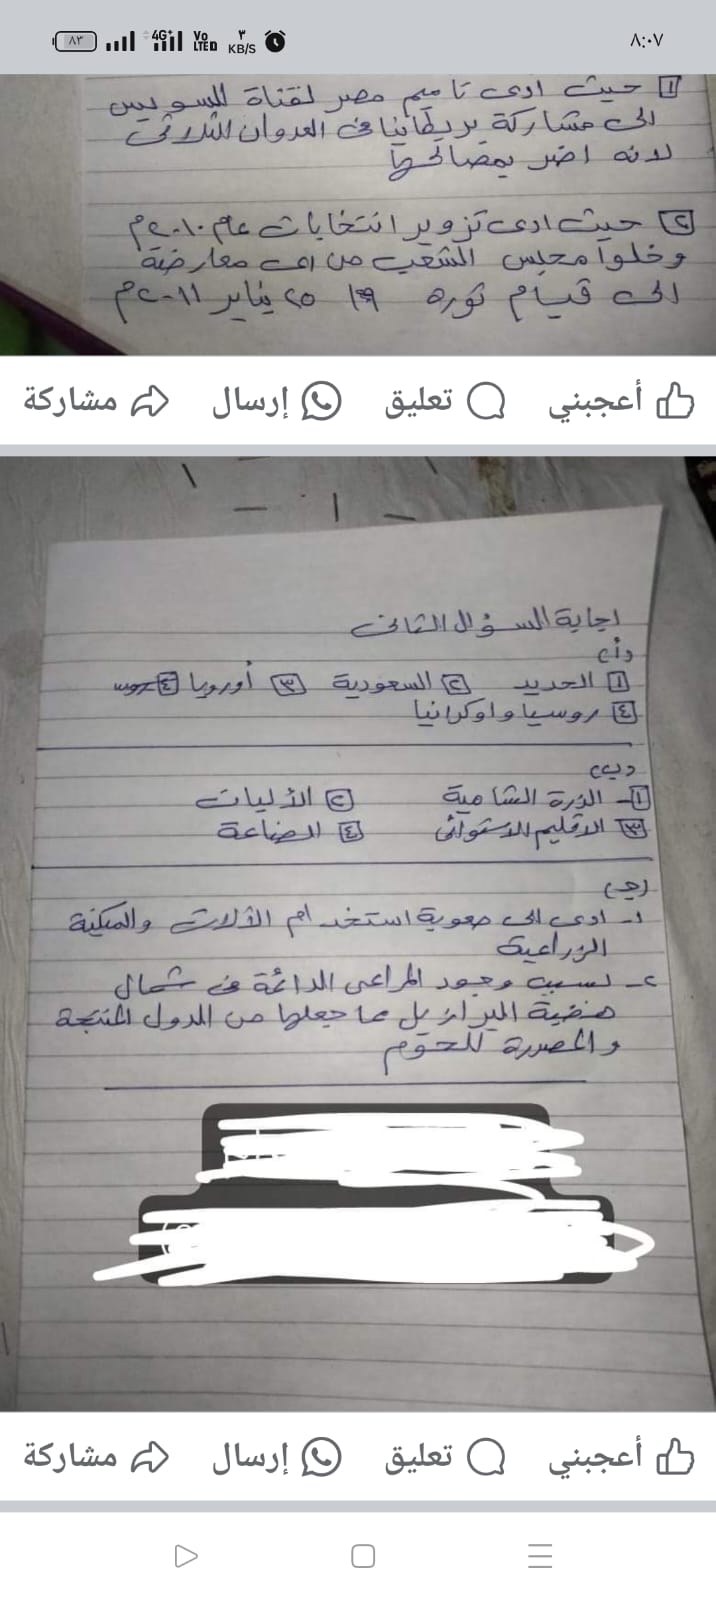 ٨:٠٧
٣ KB/S Vo LTE 4G+ ٨٣
١ حيث ادى تأميم مصر لقناة السويس
الى مشاركة بريطانيا فى العدوان الثلاثى
لانه اضر بمصالحها
٢ حيث ادى تزوير انتخابات عام ٢٠١٠م
وخلوا مجلس الشعب من اى معارضة
الى قيام ثورة ٢٥ يناير ٢٠١١م
أعجبني تعليق إرسال مشاركة
اجابة السؤال الثانى
(أ)
١ الحديد ٢ السعودية ٣ أوروبا
٤ روسيا واوكرانيا
(ب)
١- الذرة الشامية ٢ الأليات
٣ الاقليم الاستوائى ٤ الصناعة
(ج)
١- ادى الى صعوبة استخدام الألات والميكنة
الزراعية
٢- بسبب وجود المراعى الدائمة فى شمال
هضبة البرازيل مما جعلها من الدول المنتجة
والمصدرة للحوم
أعجبني تعليق إرسال مشاركة